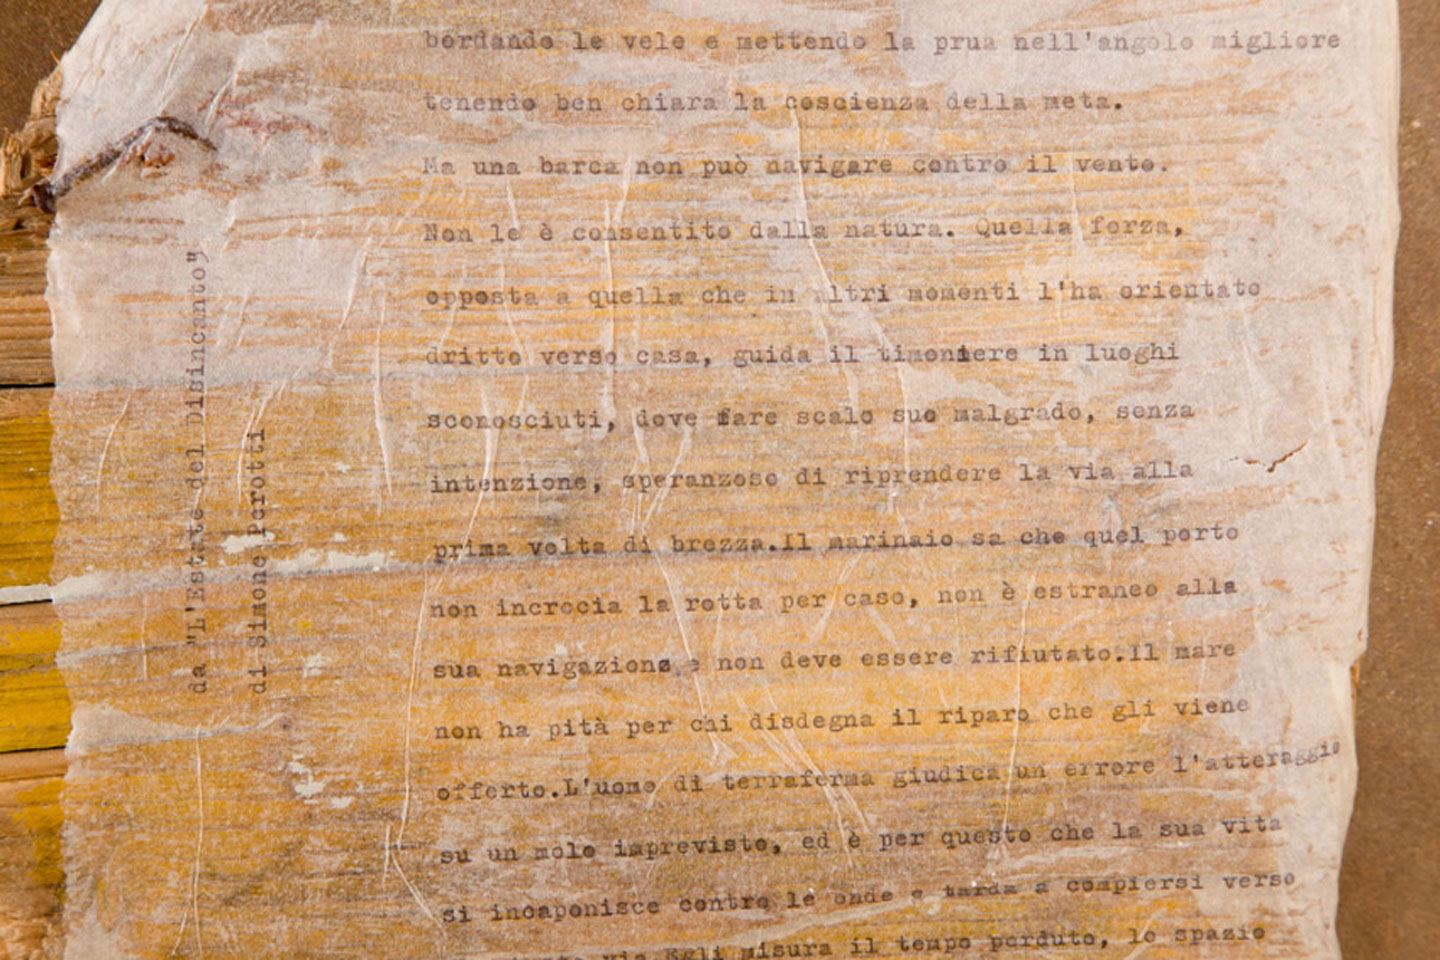 bordando le vele e mettendo la prua nell'angolo migliore
tenendo ben chiara la coscienza della meta.
Ma una barca non può navigare contro il vento.
Non le è consentito dalla natura. Quella forza,
opposta a quella che in altri momenti l'ha orientato
dritto verso casa, guida il timoniere in luoghi
sconosciuti, dove fare scalo suo malgrado, senza
intenzione, speranzoso di riprendere la via alla
prima volta di brezza.Il marinaio sa che quel porto
non incrocia la rotta per caso, non è estraneo alla
sua navigazione e non deve essere rifiutato.Il mare
non ha pità per chi disdegna il riparo che gli viene
offerto.L'uomo di terraferma giudica un errore l'atteraggio
su un molo imprevisto, ed è per questo che la sua vita
si incaponisce contro le onde e tarda a compiersi verso
via Egli misura il tempo perduto, lo spazio
da "L'Estate del Disincanto"
di Simone Perotti